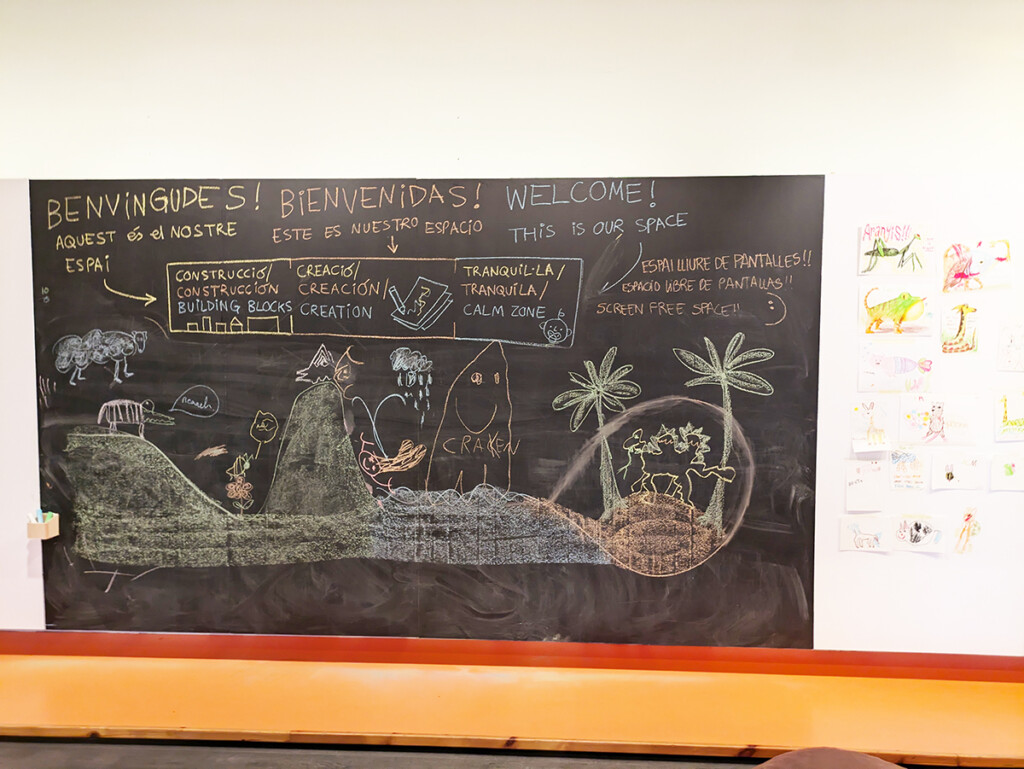 BENVINGUDES!
AQUEST éS el NOSTRE
ESPAi
BiENVENIDAS!
ESTE ES NUESTRO ESPACIO
WELCOME!
THiS iS OUR SPACE
CONSTRUCCIÓ/
CONSTRUCCIÓN
BUILDING BLOCKS
CREACIÓ/
CREACIÓN/
CREATION
TRANQUIL·LA/
TRANQUILA/
CALM ZONE
ESPAI LLIURE DE PANTALLES!!
ESPACIO LIBRE DE PANTALLAS!!
SCREEN FREE SPACE!!
CRAKEN